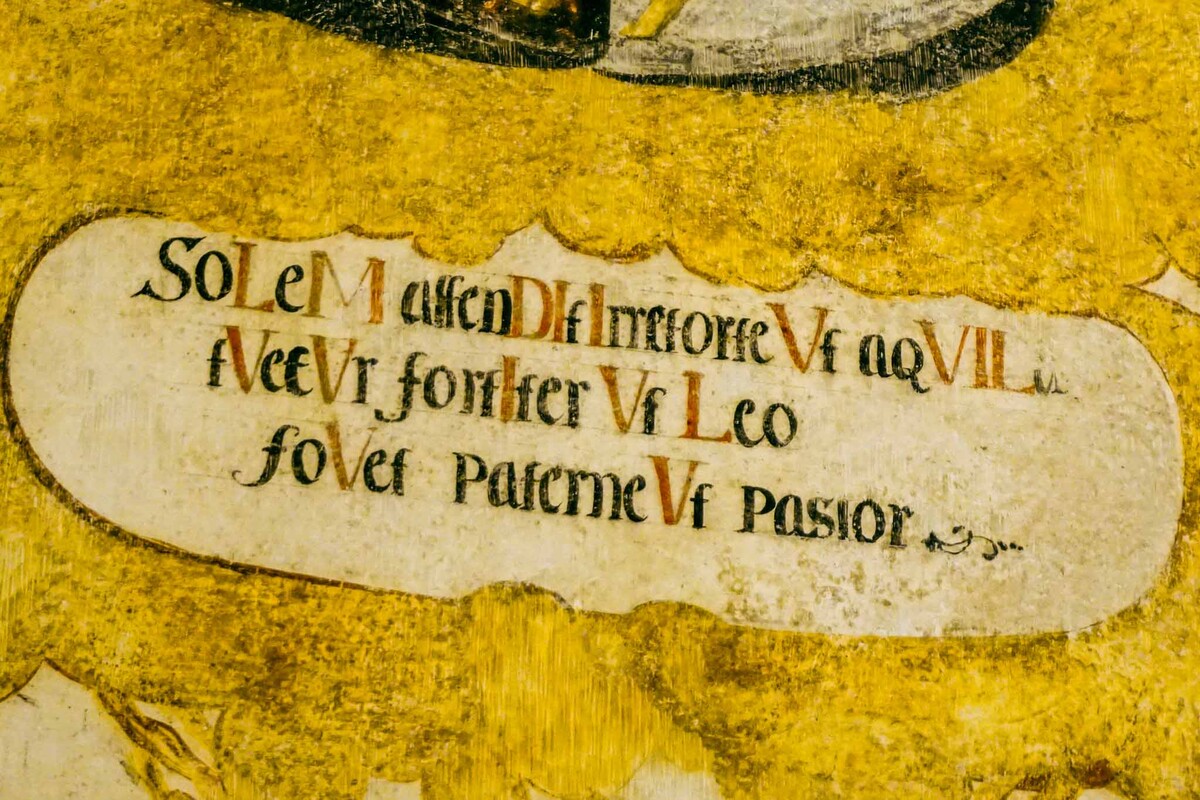 SoLeM assenDIt IrretorteVt aqVILa
tVetVr fortIter Vt Leo
foVet paterneVt pastor